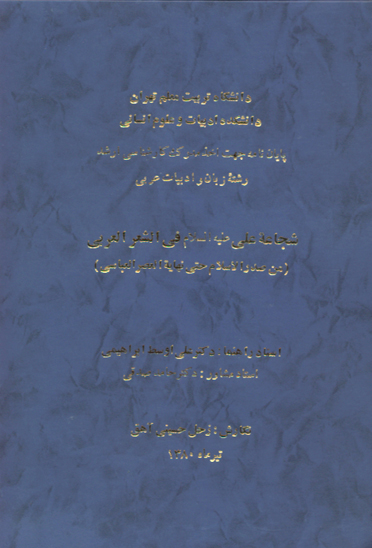 دانشگاه تربیت معلم تهران
دانشکده ادبیات و علوم انسانی
پایان نامه جهت اخذ مدرک کارشناسی ارشد
رشته زبان و ادبیات عربی
شجاعة علي علیه السلام في الشعر العربي
(من صدر الاسلام حتی نهایة العصر العباسي)
استاد راهنما : دکتر علی اوسط ابراهیمی
استاد مشاور : دکتر حامد صدقی
نگارش :
تیرماه ۱۳۸۰